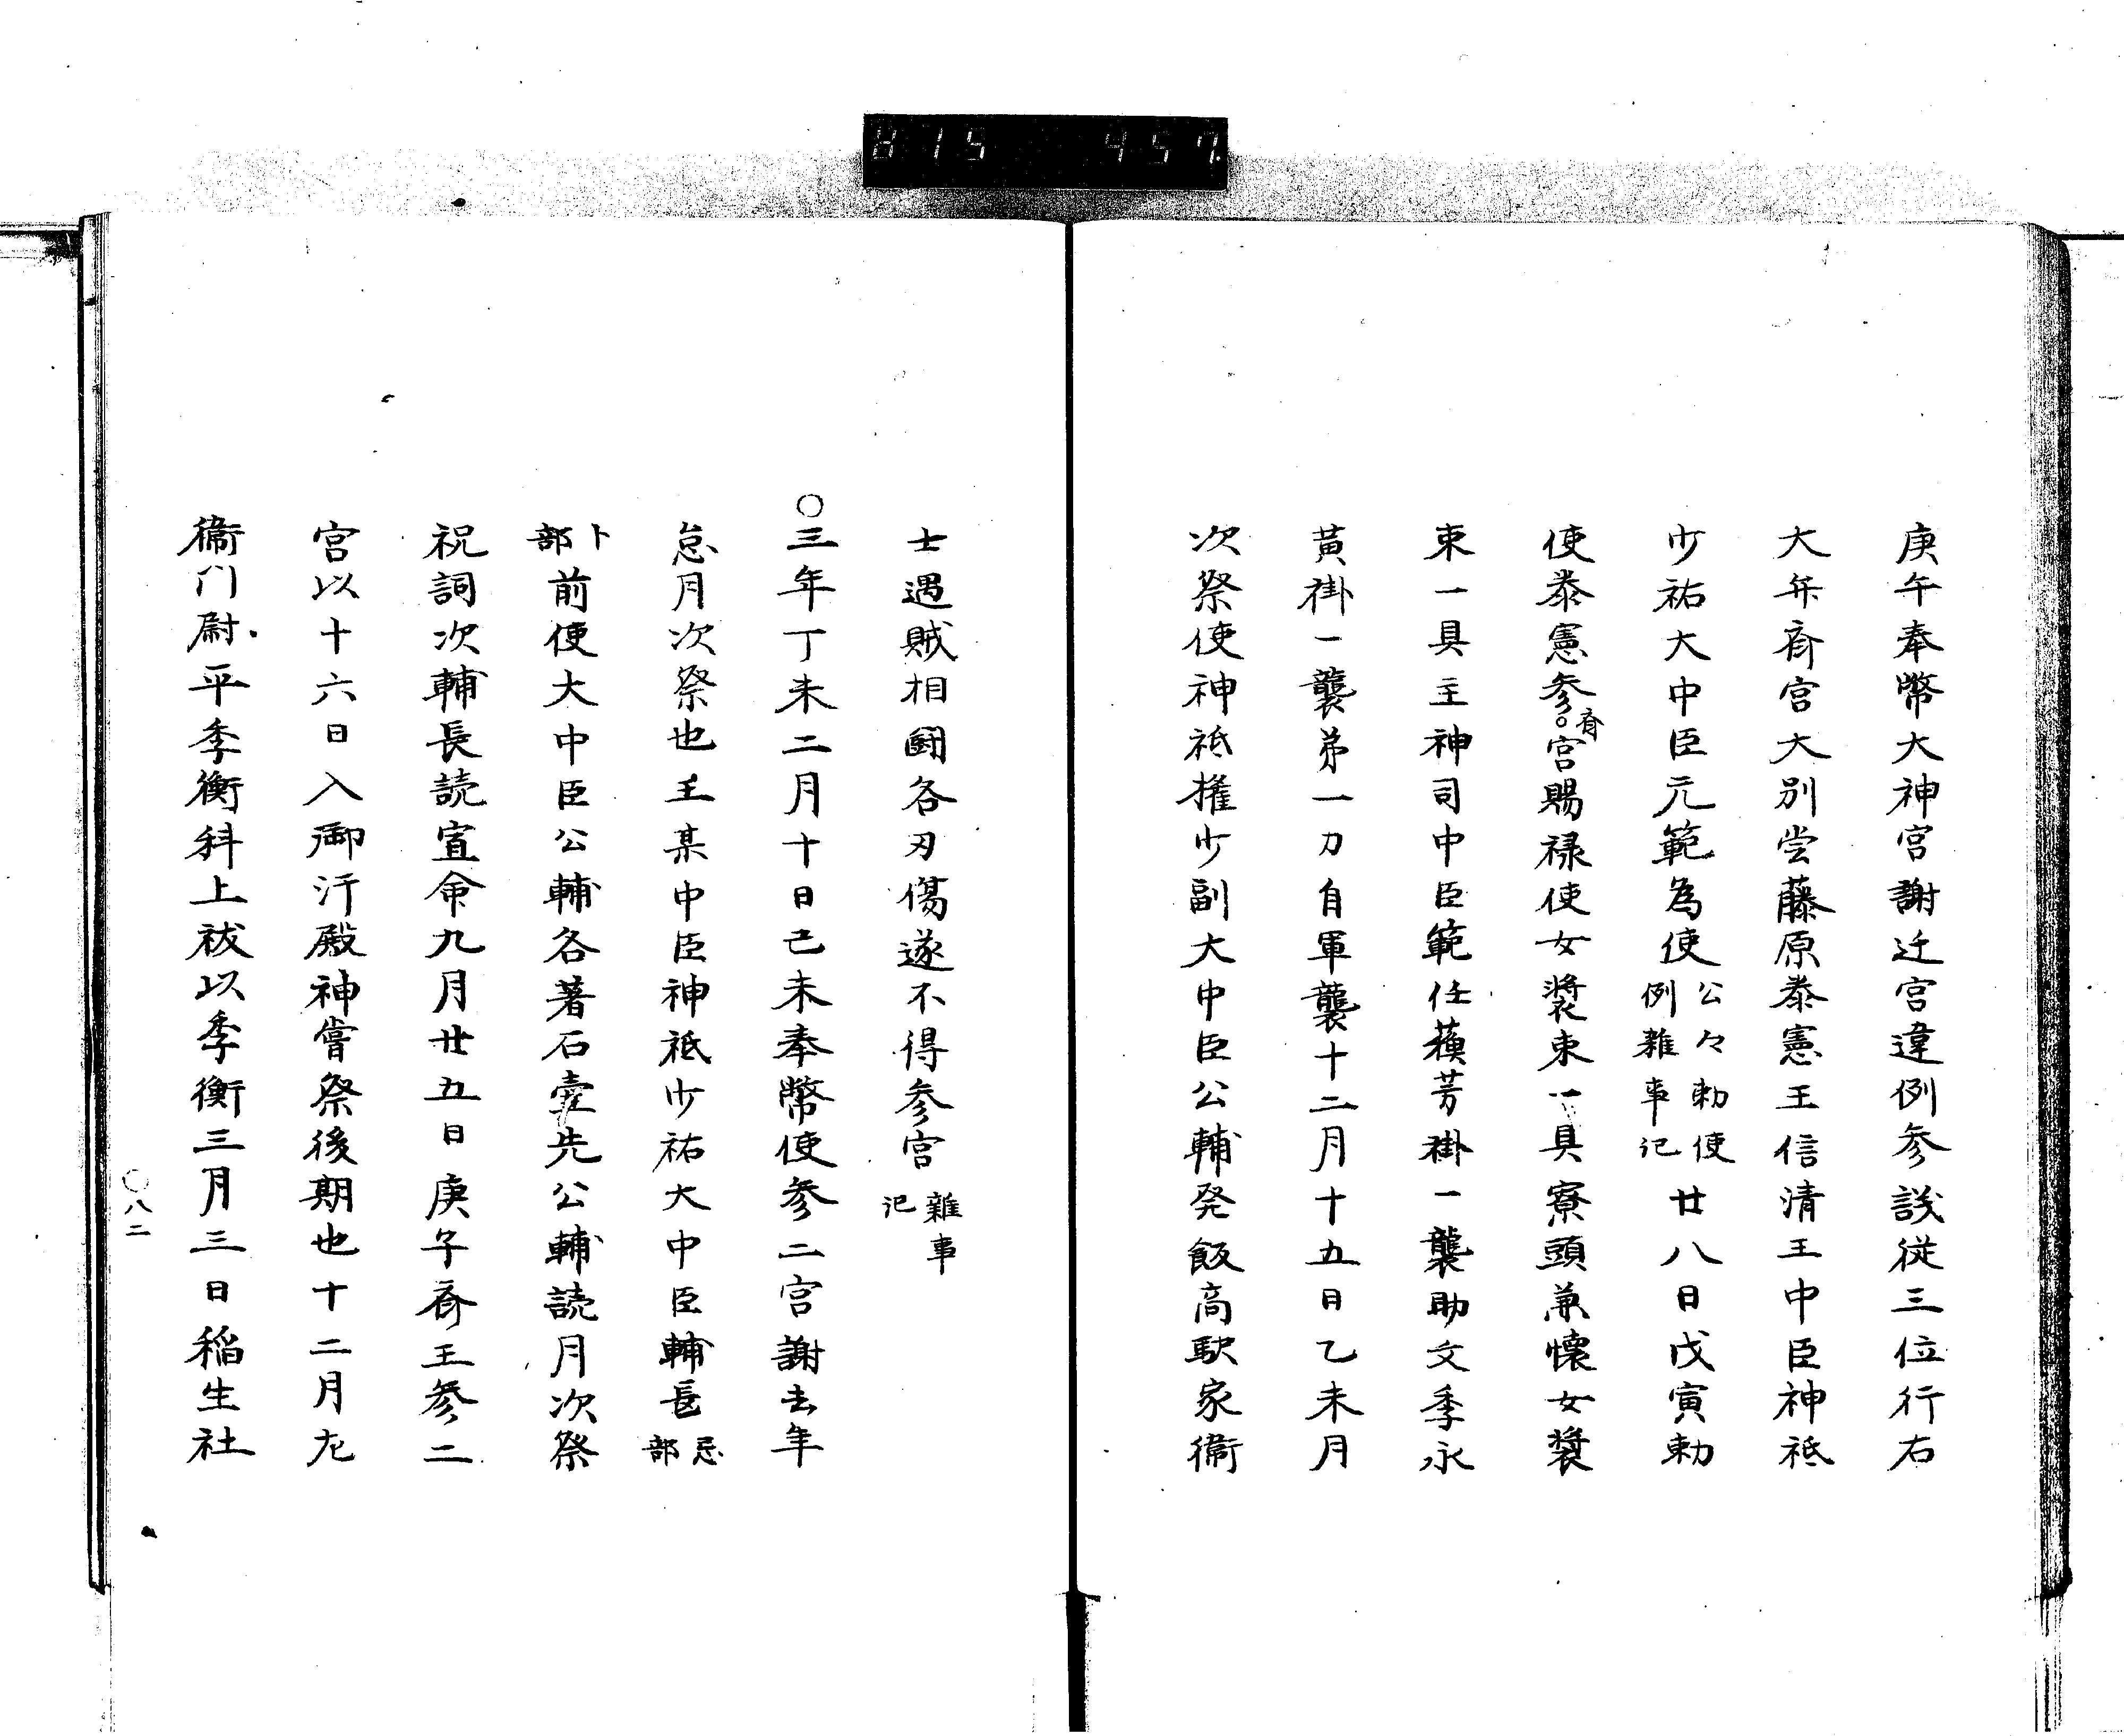 815 457
庚午奉幣大神宮謝迁宮違例参議従三位行右
大弁斎宮大別当藤原泰憲王信清王中臣神祗
少祐大中臣元範為使公々勅使例雑事记廿八日戊寅勅
使泰憲参。斎宮賜禄使女装束一具寮頭兼懐女装
束一具主神司中臣範任蘓芳褂一襲助文季永
黄褂一襲弟一刀自単襲十二月十五日乙未月
次祭使神祗権少副大中臣公輔発飯高駅家衞
士遇賊相闘各刃傷遂不得参宮雑事记
〇三年丁未二月十日己未奉幣使参二宮謝去年
怠月次祭也王某中臣神祗少祐大中臣輔長忌部
卜部前使大中臣公輔各著石壺先公輔読月次祭
祝詞次輔長読宣命九月廿五日庚子斎王参二
宮以十六日入御汙殿神嘗祭後期也十二月左
衞门尉平季衡科上祓以季衡三月三日稲生社
〇八二